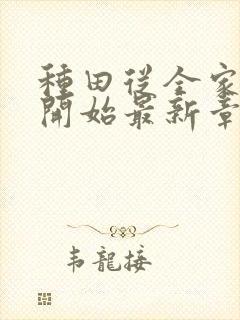 種田從全家
開始最新章
韦龍接